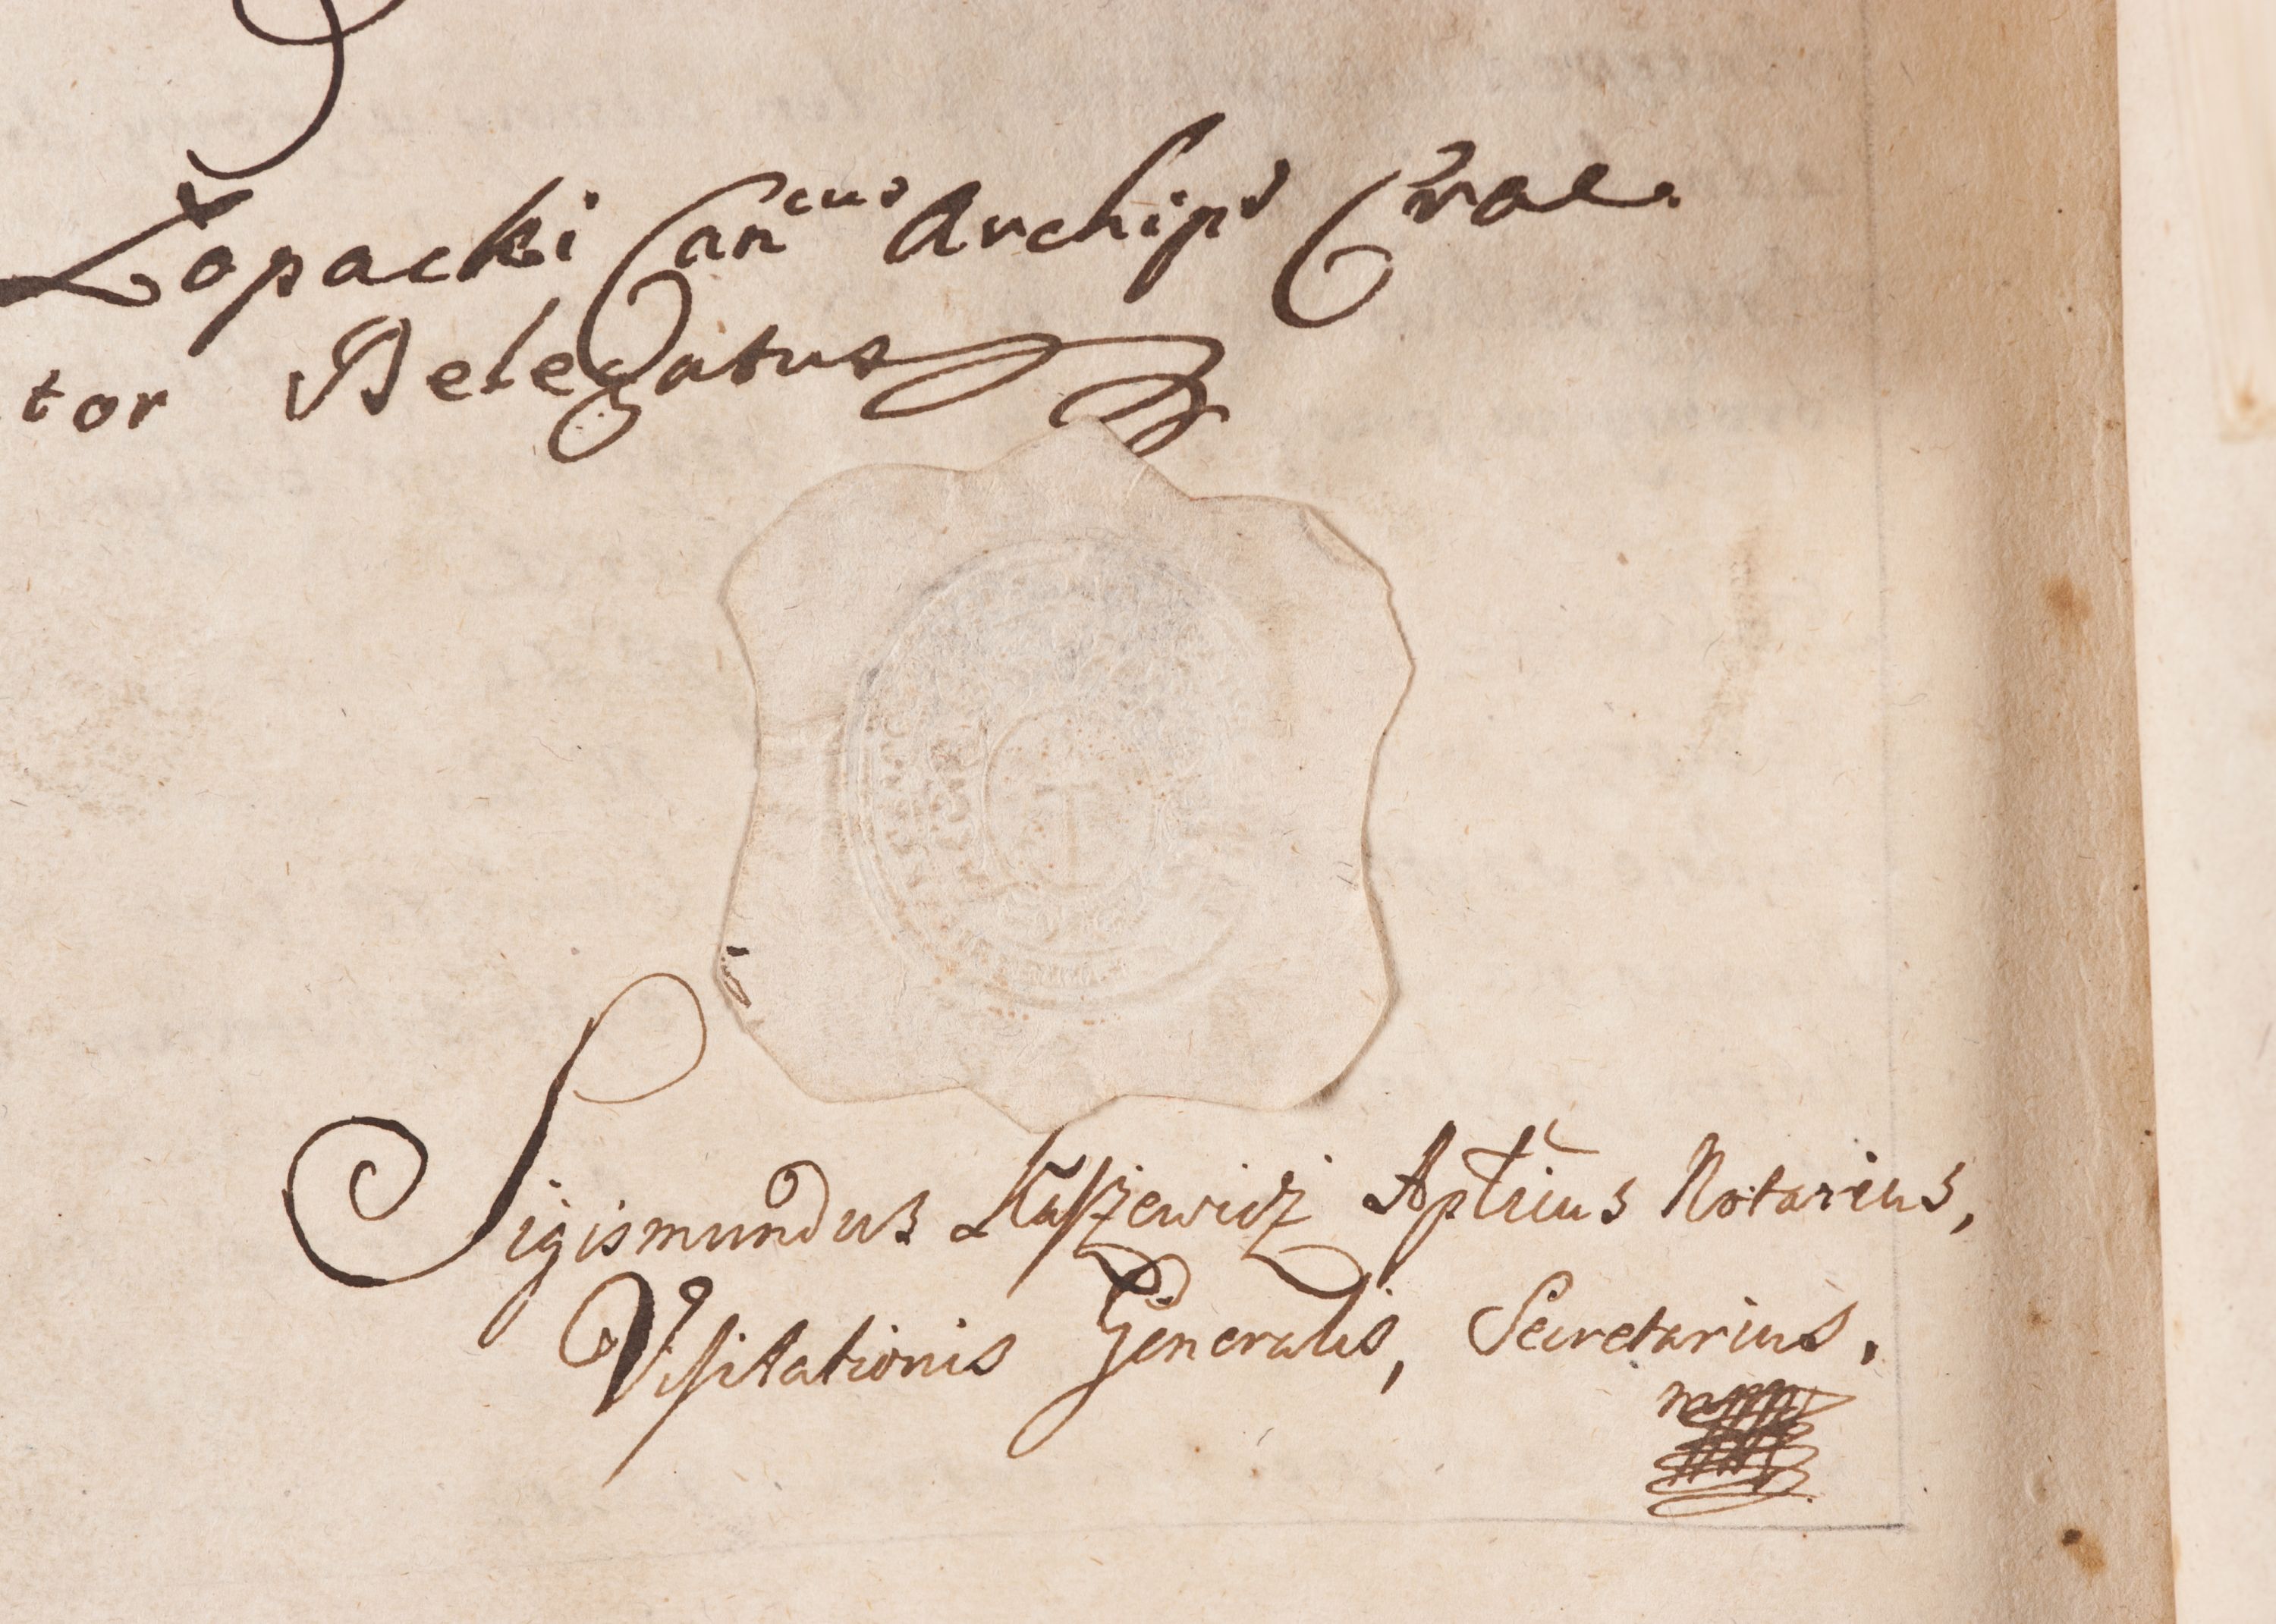 Łopacki Can^cus Archip^r Crac.
tor Delegatus
Sigismundus Kaszewicz Aptĩcus Notarius,
Visitationis Generalis, Secretarius.